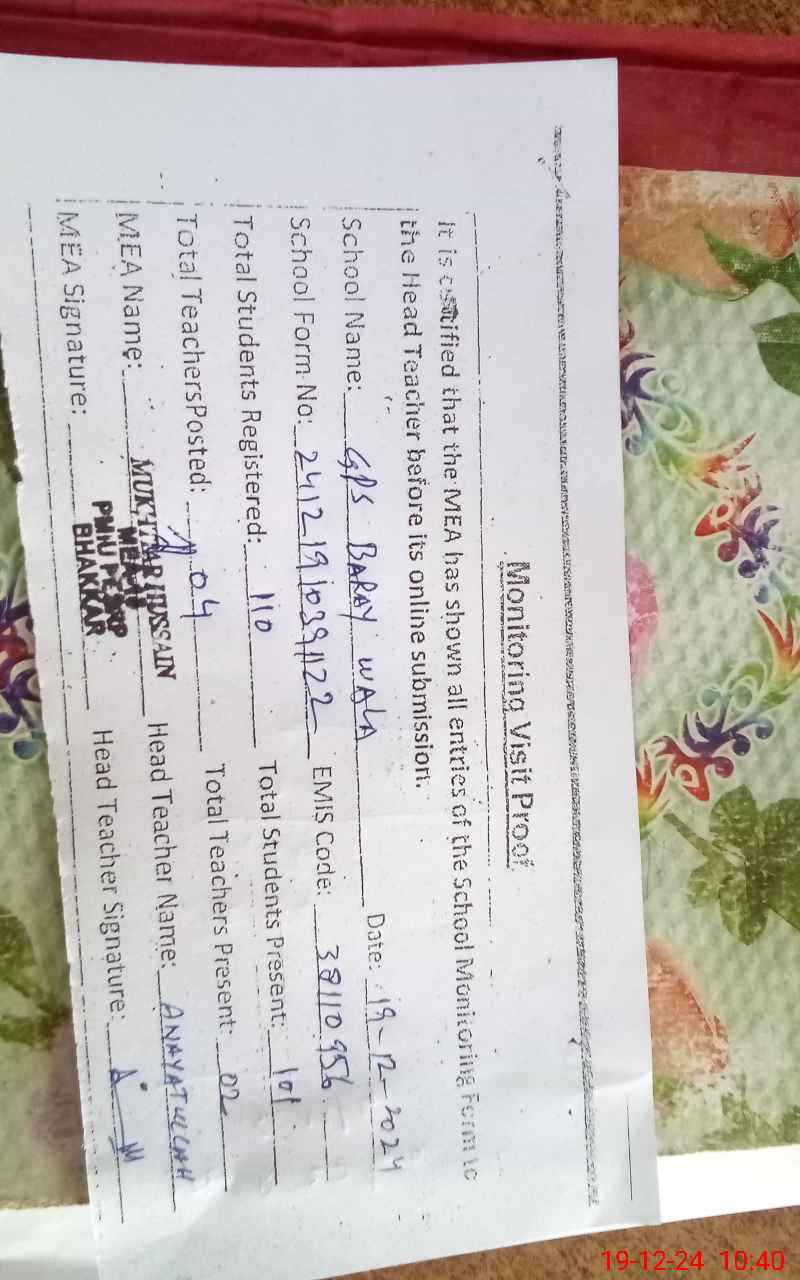 Monitoring Visit Proof
It is certified that the MEA has shown all entries of the School Monitoring Form to
the Head Teacher before its online submission.
School Name: GPS BARAY WALA Date: 19-12-2024
School Form No: 24121910391122 EMIS Code: 38110956
Total Students Registered: 110 Total Students Present: 101
Total TeachersPosted: 04 Total Teachers Present: 02
MEA Name: MUKHTAR HUSSAIN Head Teacher Name: ANAYATULLAH
MEA Signature: BHAKKAR Head Teacher Signature:
19-12-24 10:40